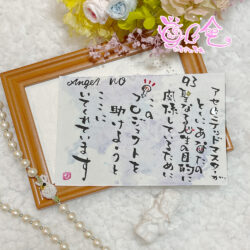 Angel NO
93
アセンデッドマスターが
といあなたの
聖なる人生の目的に
関係しているために
この
プロジェクトを
助けようと
ここに
いてくれています